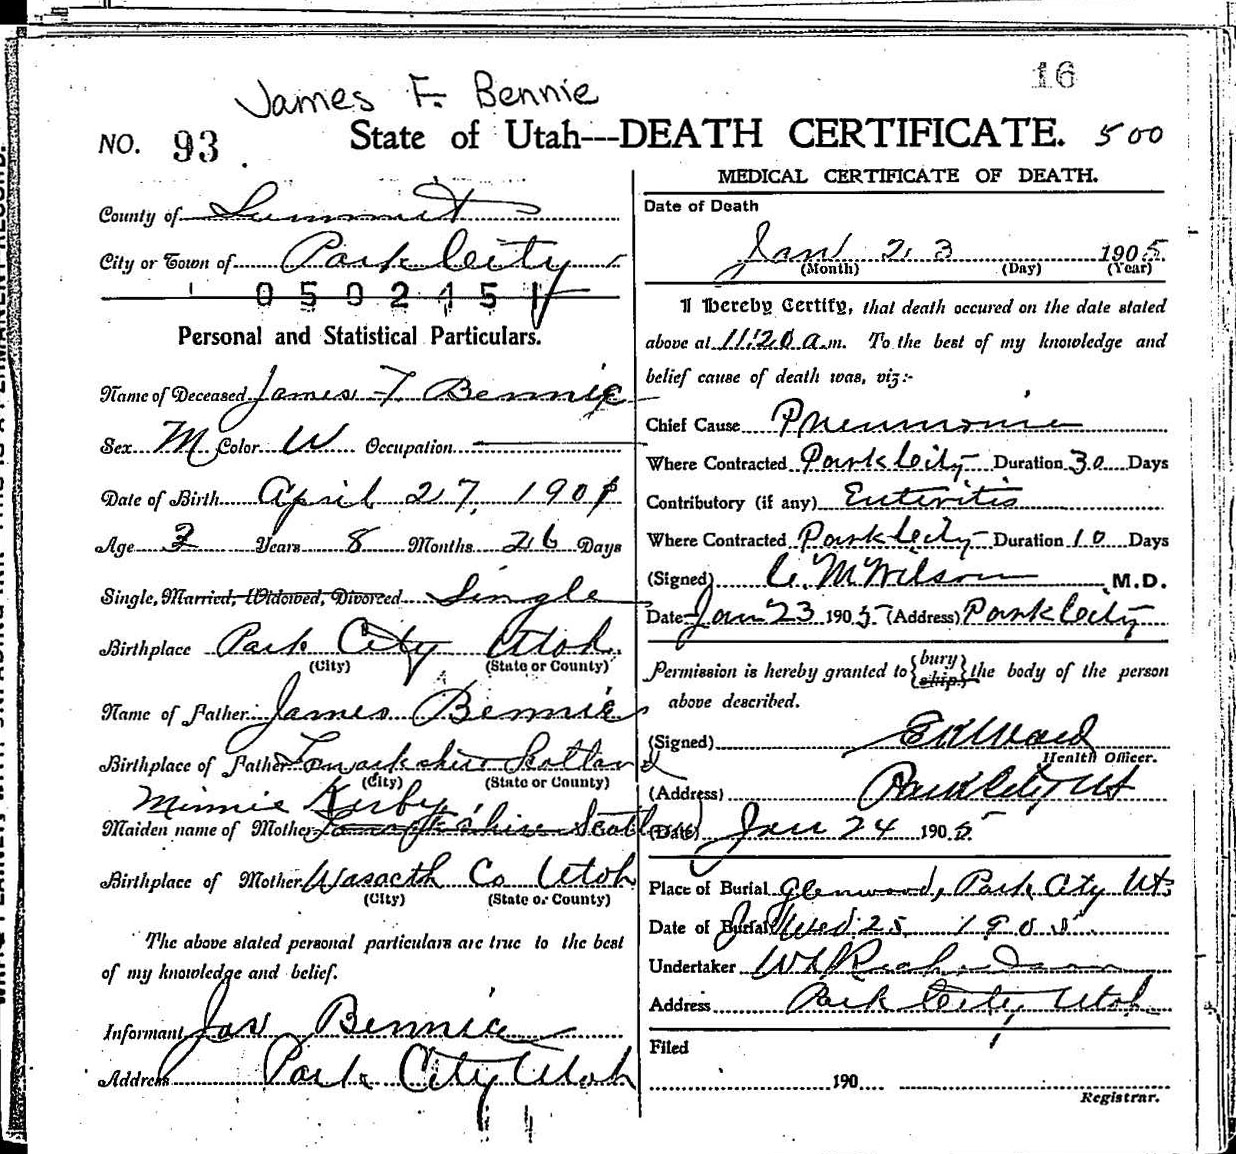 16
James F. Bennie
NO. 93
State of Utah---DEATH CERTIFICATE. 500
County of Summit
City or Town of Park City
0502451
Personal and Statistical Particulars.
Name of Deceased James F. Bennie
Sex M Color W Occupation
Date of Birth April 27, 1901
Age 3 Years 8 Months 26 Days
Single, Married, Widowed, Divorced Single
Birthplace Park City Utah
(City) (State or County)
Name of Father James Bennie
Birthplace of Father Lanarkshire Scotland
(City) (State or County)
Minnie Kerby
Maiden name of Mother Lanarkshire Scotland
Birthplace of Mother Wasacth Co Utah
(City) (State or County)
The above stated personal particulars are true to the best
of my knowledge and belief.
Informant Jas Bennie
Address Park City Utah
MEDICAL CERTIFICATE OF DEATH.
Date of Death
Jan 23 1905
(Month) (Day) (Year)
I Hereby Certify, that death occured on the date stated
above at 11:20 a.m. To the best of my knowledge and
belief cause of death was, viz:-
Chief Cause Pneumonia
Where Contracted Park City Duration 30 Days
Contributory (if any) Enteritis
Where Contracted Park City Duration 10 Days
(Signed) M Wilson M.D.
Date Jan 23 1905 (Address) Park City
Permission is hereby granted to {bury
{ship.} the body of the person
above described.
(Signed) Ward
Health Officer.
(Address) Park City Ut
(Date) Jan 24 1905
Place of Burial Glenwood, Park City Ut.
Date of Burial Wed 25 1905
Undertaker Richardson
Address Park City Utah
Filed
190
Registrar.